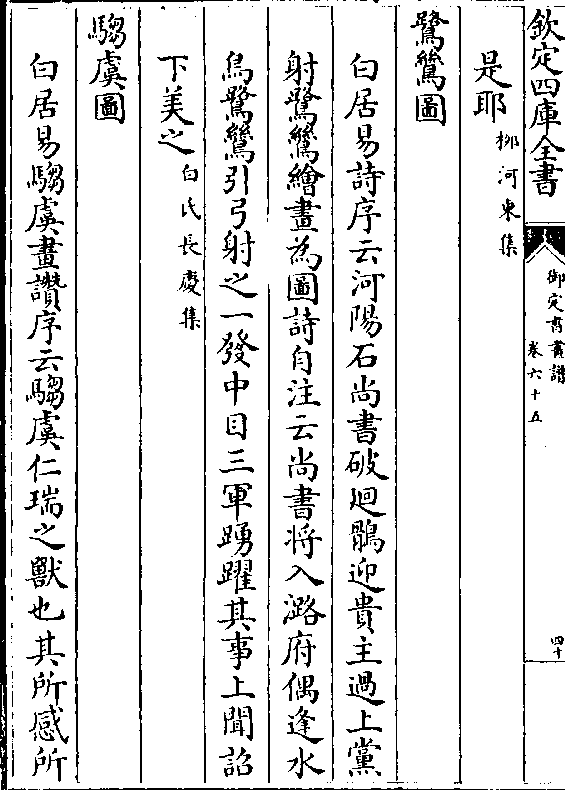 欽定四庫全書
御定書畫譜
卷六十五
四十
是耶柳河東集
鷺鷥圖
白居易詩序云河陽石尚書破迴鶻迎貴主過上黨
射鷺鷥繪畫為圖詩自注云尚書将入潞府偶逢水
鳥鷺鷥引弓射之一發中目三軍踴躍其事上聞詔
下美之白氏長慶集
騶虞圖
白居易騶虞畫讚序云騶虞仁瑞之獸也其所感所